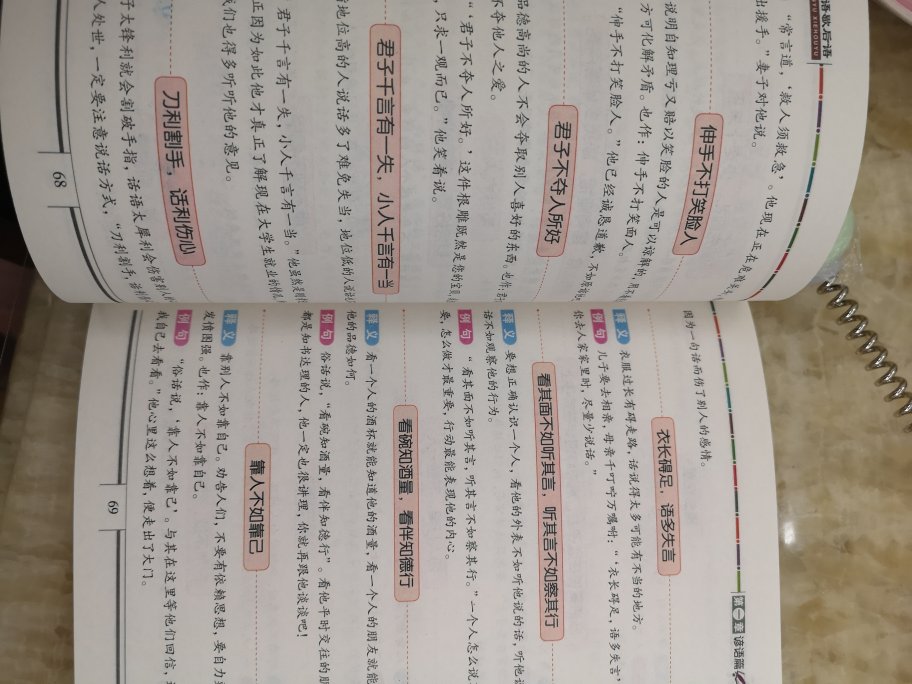 语歇后语
YU XIEHOUYU
“常言道，‘救人须救急’。他现在正在危难
出援手。”妻子对他说。
伸手不打笑脸人
说明自知理亏又赔以笑脸的人是可以谅解的，用不着
方可化解矛盾。也作：伸手不打笑面人。
“伸手不打笑脸人。”他已经诚恳道歉，不如原谅他
君子不夺人所好
品德高尚的人不会夺取别人喜好的东西。也作：君子
不夺他人之爱。
“‘君子不夺人所好。’这件根雕既然是您的宝贝，
，只求一观而已。”他笑着说。
君子千言有一失，小人千言有一当
指地位高的人说话多了难免失当，地位低的人说话
君子千言有一失，小人千言有一当。”他虽然是
正因为如此他才真正了解现在大学生就业的情况
我们也得多听听他的意见。
刀利割手，话利伤心
子太锋利就会割破手指，话语太犀利会伤害别人的
人处世，一定要注意说话方式，“刀利割手，话利伤
68
第一章 谚语篇
因为一句话而伤了别人的感情。
衣长碍足，语多失言
释义 衣服过长有碍走路，话说得太多可能有不当的地方。
例句 儿子要去相亲，母亲千叮咛万嘱咐：“‘衣长碍足，语多失言’
你去人家家里时，尽量少说话。”
看其面不如听其言，听其言不如察其行
释义 要想正确认识一个人，看他的外表不如听他说的话，听他说
话不如观察他的行为。
例句 “看其面不如听其言，听其言不如察其行。”一个人怎么说
要，怎么做才最重要，行动最能表现他的内心。
看碗知酒量，看伴知德行
释义 看一个人的酒杯就能知道他的酒量，看一个人的朋友就能
他的品德如何。
例句 俗话说，“看碗知酒量，看伴知德行”。看他平时交往的朋
都是知书达理的人，他一定也很讲理，你就再跟他谈谈吧！
靠人不如靠己
释义 靠别人不如靠自己。劝告人们，不要有依赖思想，要自力更
发愤图强。也作：靠人不如靠自己。
例句 “俗话说，‘靠人不如靠己’。与其在这里等他们回信，
我自己去看看。”他心里这么想着，便走出了大门。
69